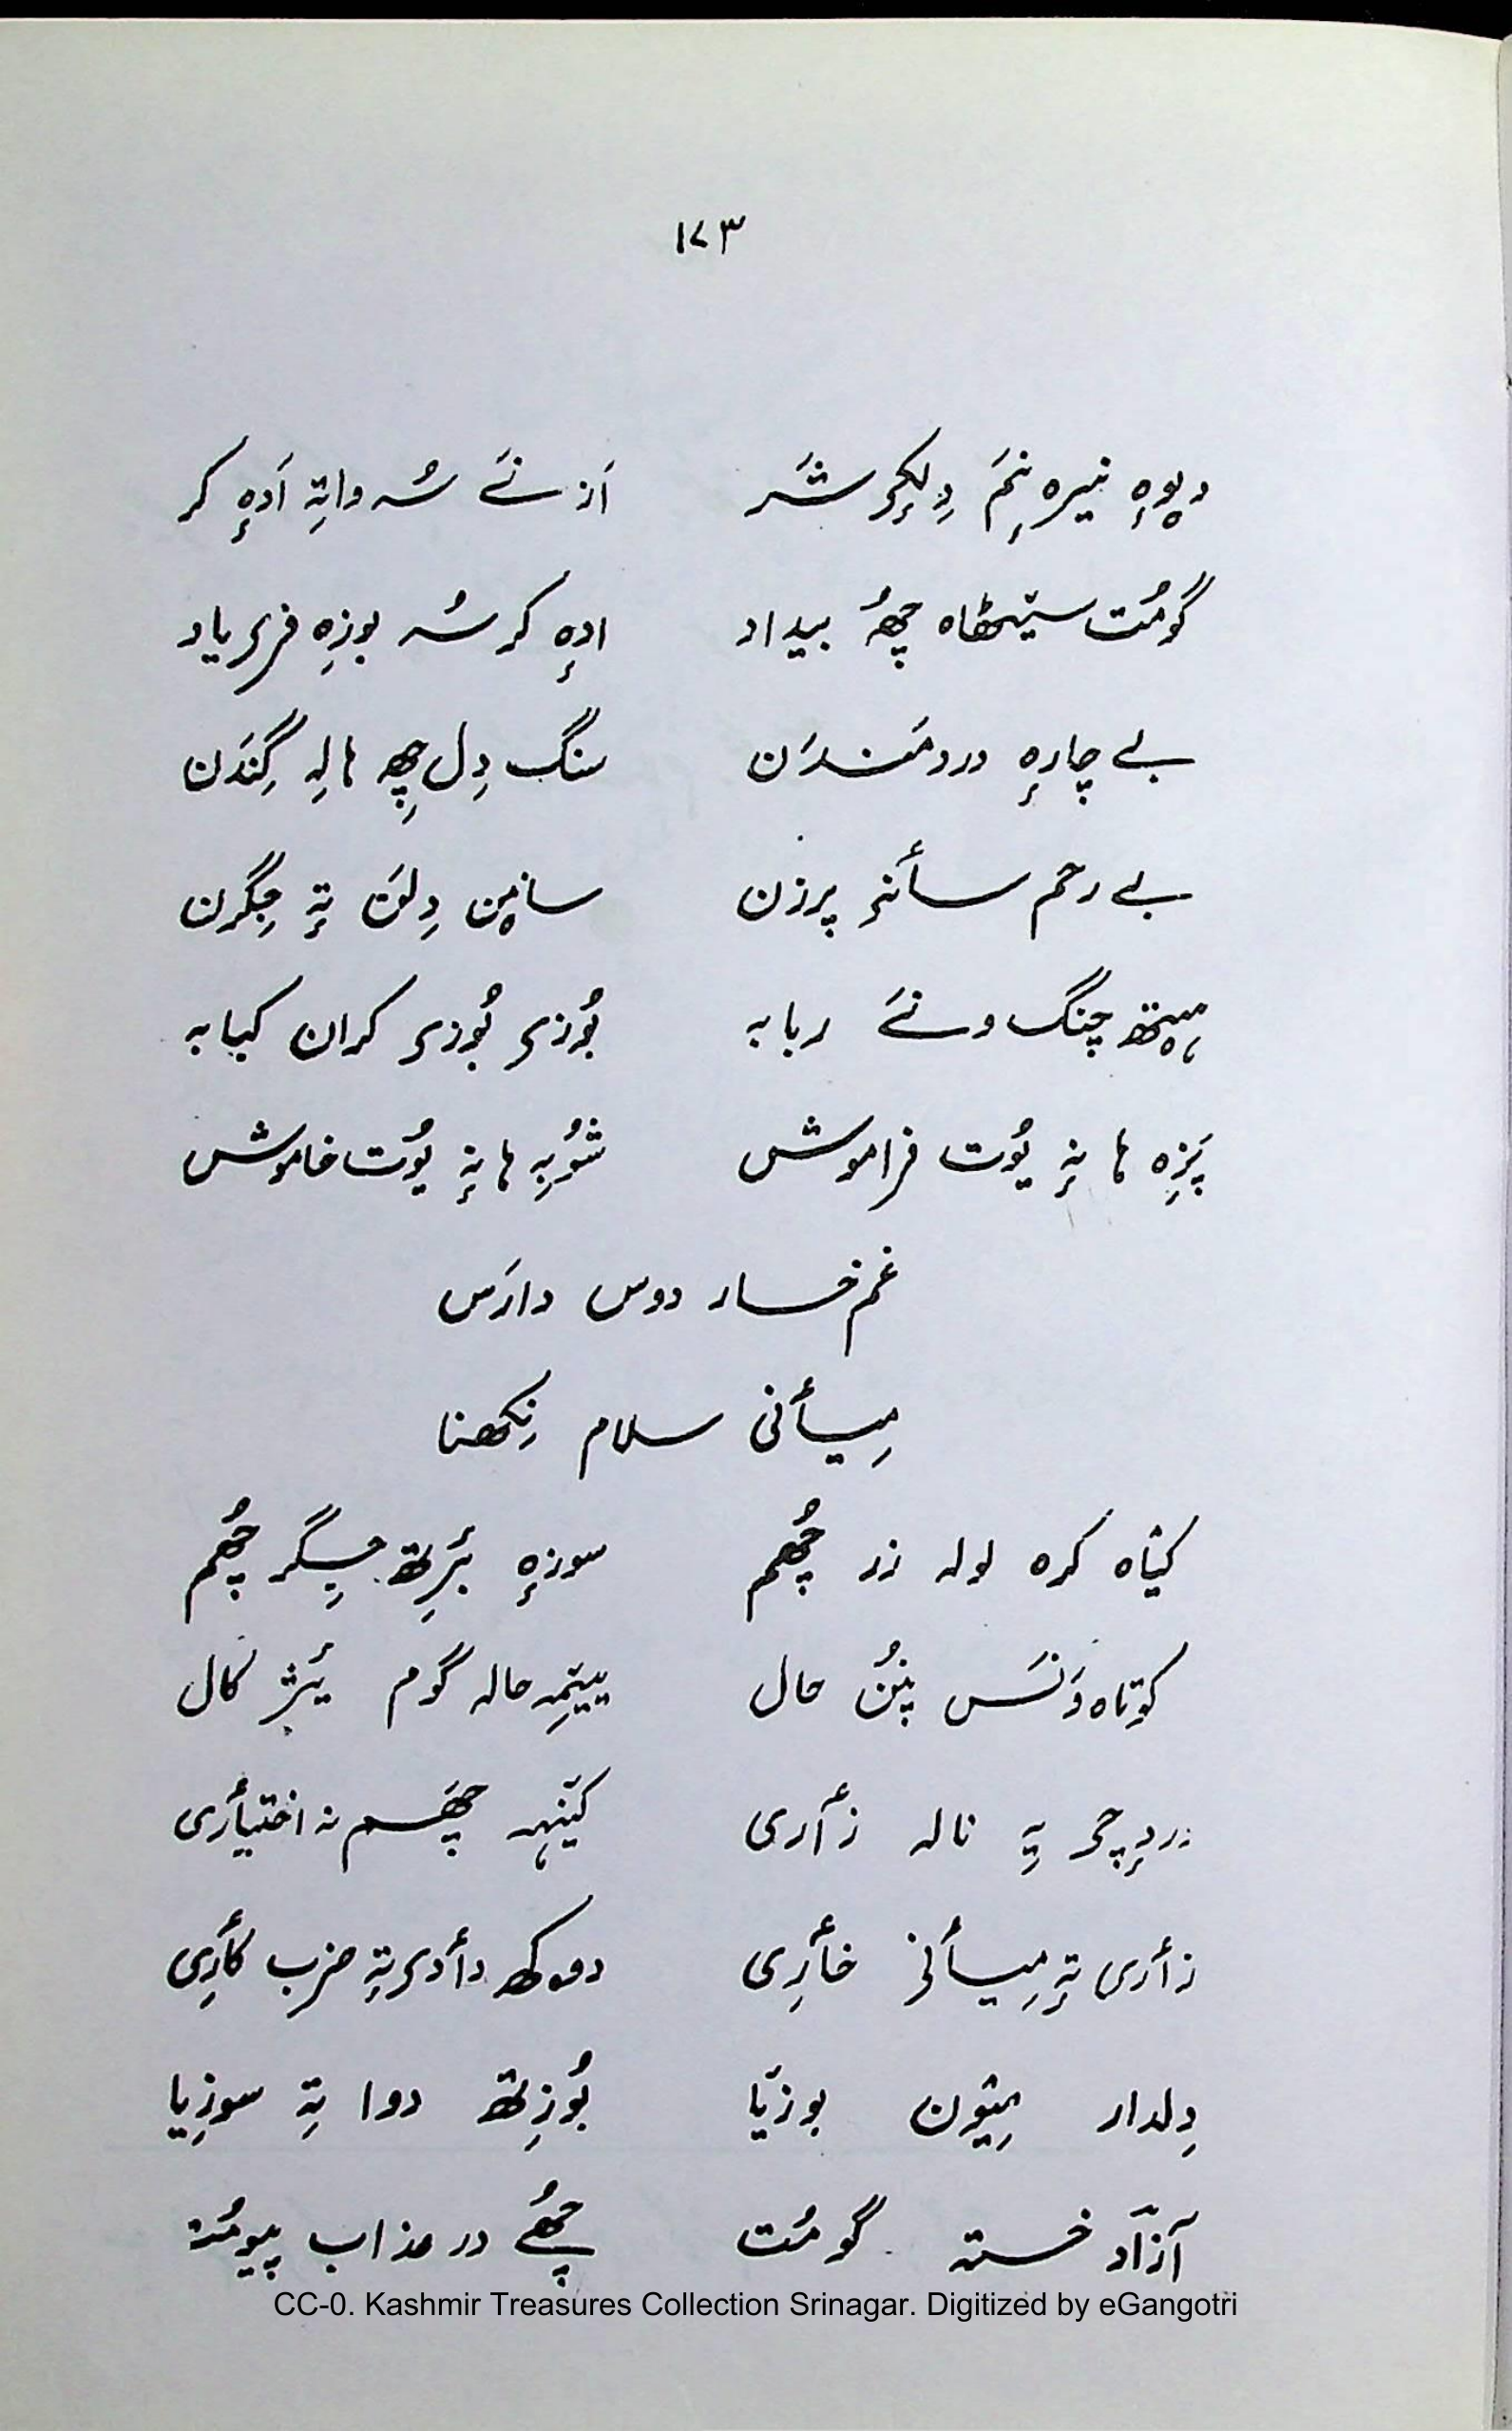 ۱۷۳
دیوٕہ نیرہ نِمَ دِلکِۍ شَر اَز نَے سُہ واتِہ اَدٕہ کر
گومُت سیٚٹھاہ چھُ بیداد ادٕہ کر سُہ بوزِہ فریاد
بے چارٕہ دردمَندَن سنگ دِل چِھ ہالِہ گِندَن
بے رحم سأنۍ پرزن سانٮ۪ن دِلَن تہٕ جِگرن
ہیٚتھ چنگ و نَے ربابہ بُوزۍ بُوزۍ کران کبابہ
پَزِہ ہا نہٕ یُوت فراموش شُوبِہ ہا نہٕ یُوت خاموش
غم خسار دوس دارَس
مِیأنی سلام نِکھنا
کیٛاہ کرہ لولہ نار چُھم سوزٕہ بٔرِتھ جِگر چُھم
کوٗتاہ وَنَس پنُن حال ییٚتمِہ حالہ گوم یٔژ کال
دردٕچۍ یہِ نالہ زأری کیٚنٛہہ چھَم نہ اختیأری
زأری تہٕ مِیأنۍ خأرِی دوکھ دأدۍ تہٕ ضرب کأرِی
دِلدار میٛون بوزیٚا بُوزِتھ دوا تہِ سوزِیا
آزاد خستہ گومُت چُھے در عذاب پیومُت
CC-0. Kashmir Treasures Collection Srinagar. Digitized by eGangotri